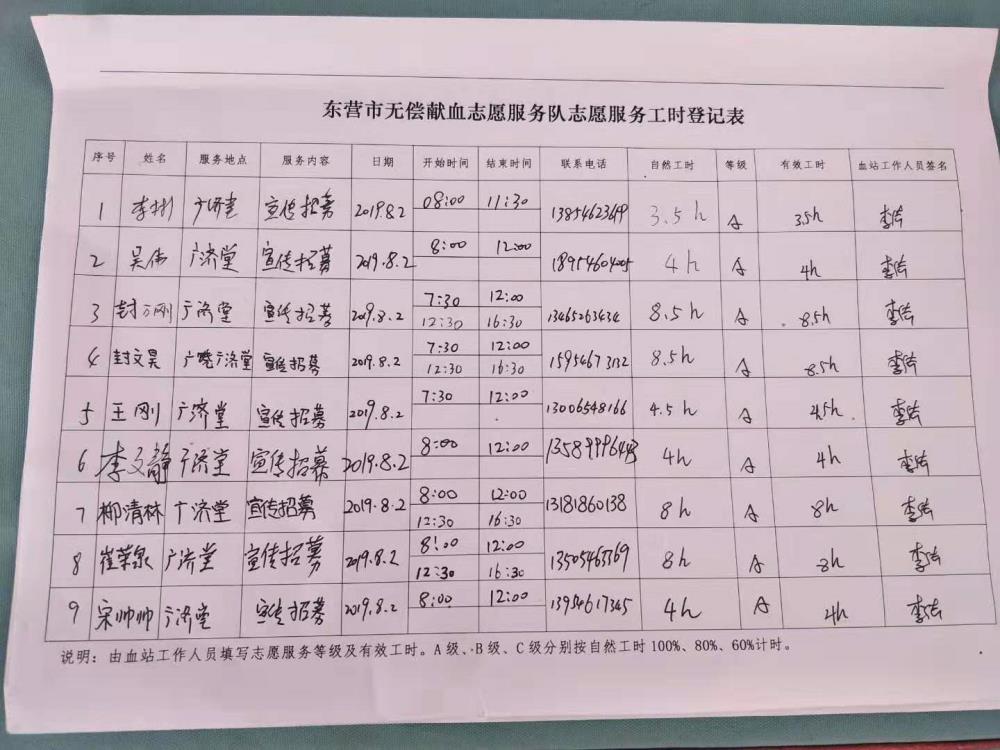 东营市无偿献血志愿服务队志愿服务工时登记表
序号 姓名 服务地点 服务内容 日期 开始时间 结束时间 联系电话 自然工时 等级 有效工时 血站工作人员签名
1 李彬 广济堂 宣传招募 2019.8.2 08:00 11:30 3.5h A 3.5h
2 吴伟 广济堂 宣传招募 2019.8.2 8:00 12:00 18954604005 4h A 4h
3 封万刚 广济堂 宣传招募 2019.8.2 7:30 12:00 13465263434 8.5h A 8.5h
12:30 16:30
4 封文昊 广饶广济堂 宣传招募 2019.8.2 7:30 12:00 15954673132 8.5h A 8.5h
12:30 16:30
5 王刚 广济堂 宣传招募 2019.8.2 7:30 12:00 13006548166 4.5h A 4.5h
6 李文静 广济堂 宣传招募 2019.8.2 8:00 12:00 4h A 4h
7 柳清林 广济堂 宣传招募 2019.8.2 8:00 12:00 13181860138 8h A 8h
12:30 16:30
8 崔荣泉 广济堂 宣传招募 2019.8.2 8:00 12:00 8h A 8h
12:30 16:30
9 宋帅帅 广济堂 宣传招募 2019.8.2 8:00 12:00 13954617345 4h A 4h
说明：由血站工作人员填写志愿服务等级及有效工时。A级、B级、C级分别按自然工时100%、80%、60%计时。